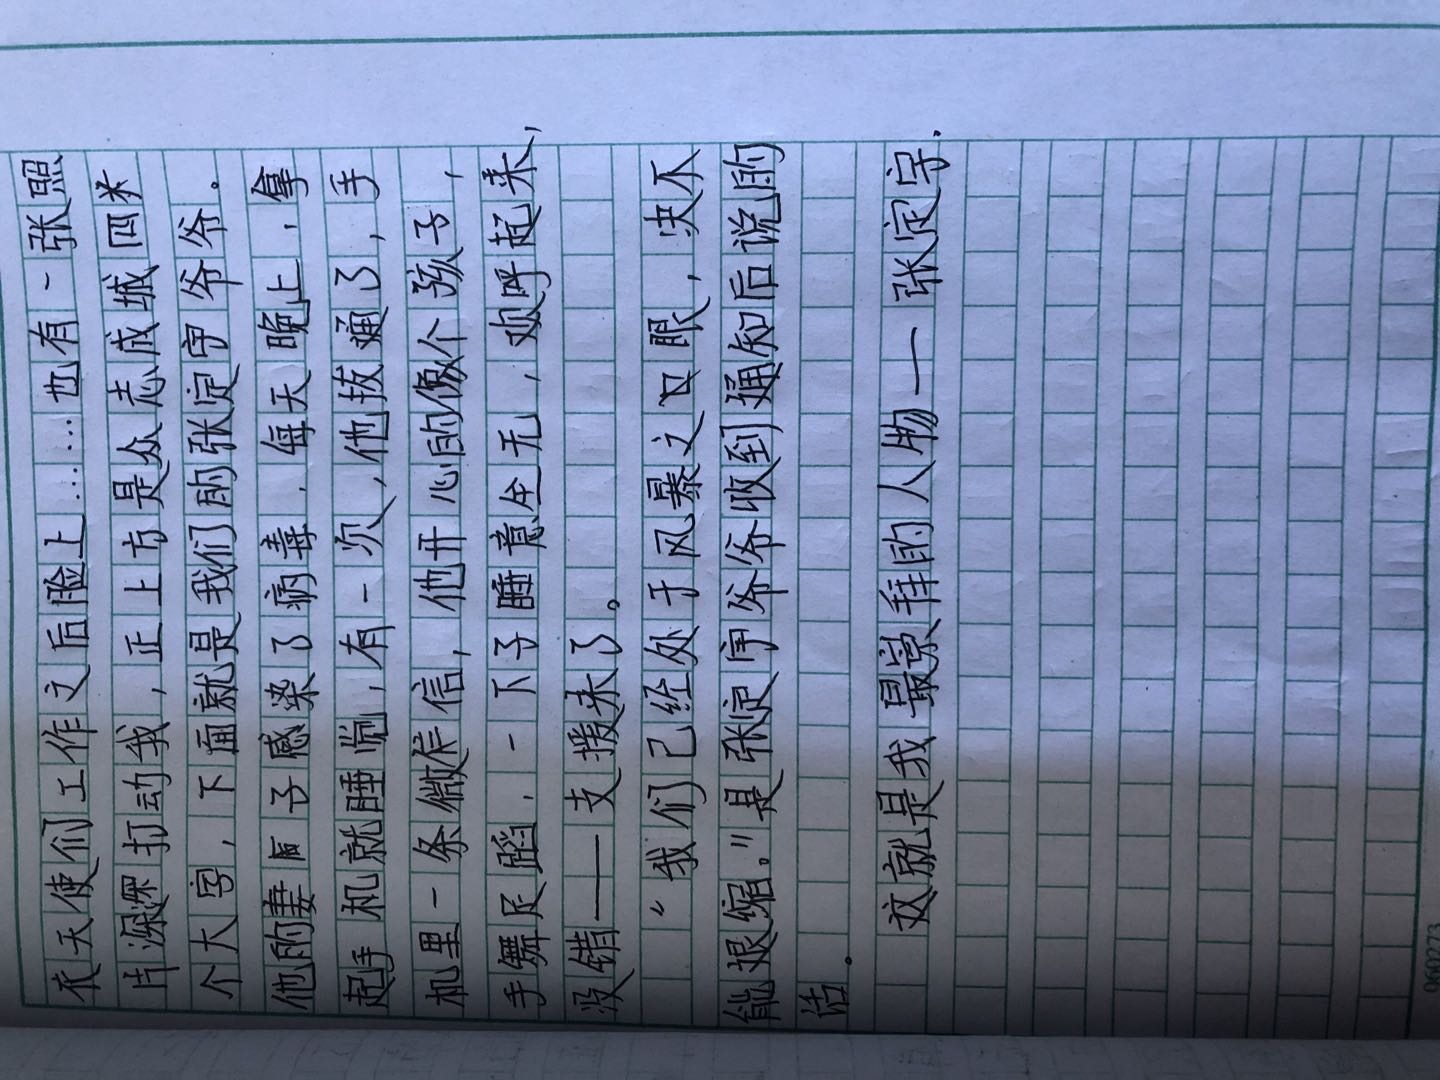 衣天使们工作之后脸上……也有一张照
片深深打动我，正上方是众志成城四米
个大字，下面就是我们的张定宇爷爷。
他的妻子感染了病毒，每天晚上，拿
起手机就睡觉，有一次，他拔通了，手
机里一条微信，他开心的像个孩子，
手舞足蹈，一下子睡意全无，欢呼起来，
没错——支援来了。
“我们已经处于风暴之口眼，决不
能退缩。”是张定宇爷爷收到通知后说的
话。
这就是我最崇拜的人物——张定宇.
060273